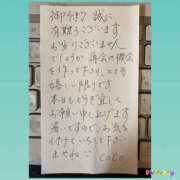 御予約 誠に
有難うございます
お変りございません
でしょうか 再会の機会
を作って下さり、とても
嬉しい限りです
本日もどうぞ宜しく
お願い申し上げます
暑いですので、お気を
付けていらして下さい
ませね
CoCo